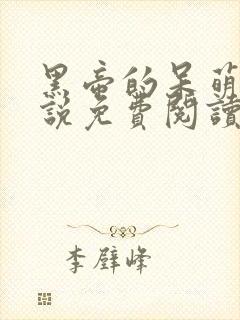 黑帝的呆萌
說免費閱讀
李璧峰